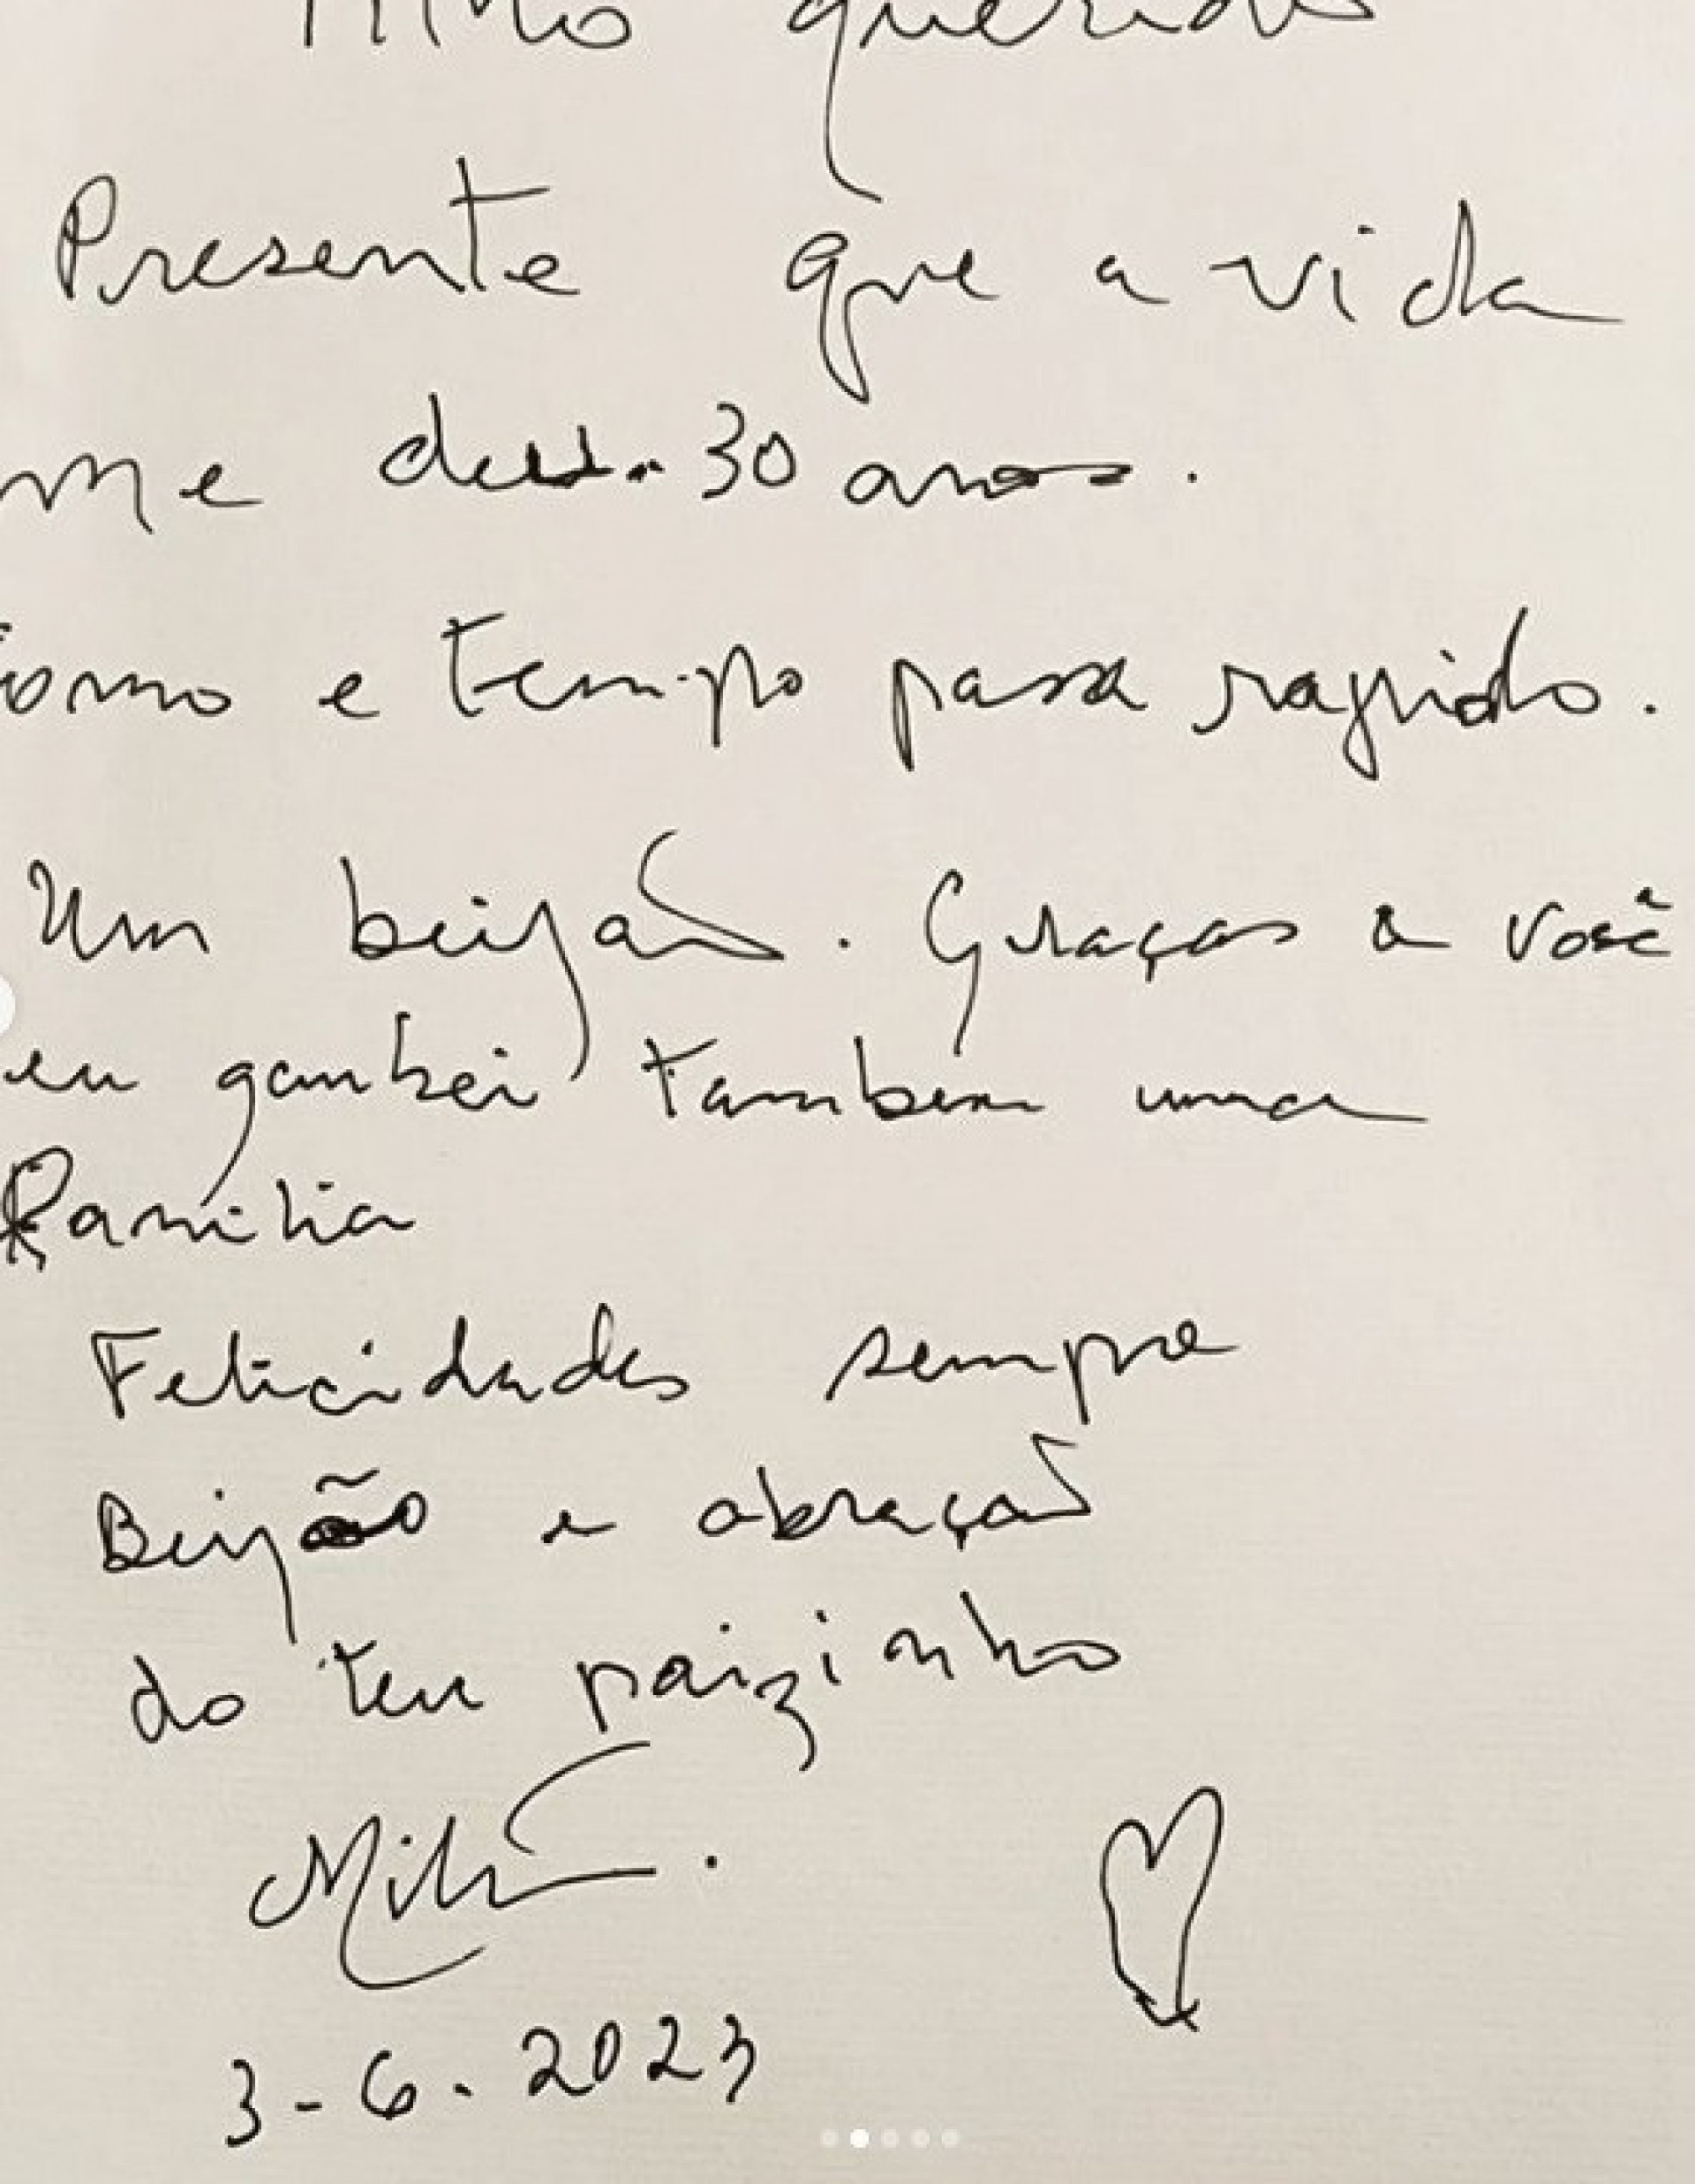 Filho querido
Presente que a vida
me deu. 30 anos.
Como e tempo passa rapido.
Um beijão. Graças a você
eu ganhei tambem uma
Familia
Felicidades sempre
Beijão e abração
do teu paizinho
3-6.2023